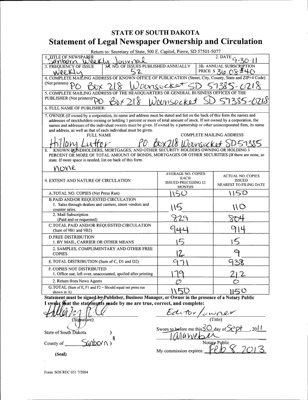 STATE OF SOUTH DAKOTA
Statement of Legal Newspaper Ownership and Circulation
Return to: Secretary of State, 500 E. Capitol, Pierre, SD 57501-5077
1. TITLE OF NEWSPAPER 2. DATE
Sanborn Weekly Journal 9-30-11
3. FREQUENCY OF ISSUE 3A. NO. OF ISSUES PUBLISHED ANNUALLY 3B. ANNUAL SUBSCRIPTION
weekly 52 PRICE $
4. COMPLETE MAILING ADDRESS OF KNOWN OFFICE OF PUBLICATION (Street, City, County, State and ZIP+4 Code)
(Not printers) PO Box 218 Woonsocket SD 57385-0218
5. COMPLETE MAILING ADDRESS OF THE HEADQUARTERS OF GENERAL BUSINESS OFFICES OF THE
PUBLISHER (Not printers) PO Box 218 Woonsocket SD 57385-0218
6. FULL NAME OF PUBLISHER:
7. OWNER (If owned by a corporation, its name and address must be stated and list on the back of this form the names and
addresses of stockholders owning or holding 1 percent or more of total amount of stock. If not owned by a corporation, the
names and addresses of the individual owners must be given. If owned by a partnership or other unincorporated firm, its name
and address, as well as that of each individual must be given.
FULL NAME COMPLETE MAILING ADDRESS
Hillary Lutter PO Box 218 Woonsocket SD 57385
8. KNOWN BONDHOLDERS, MORTGAGES, AND OTHER SECURITY HOLDERS OWNING OR HOLDING 1
PERCENT OR MORE OF TOTAL AMOUNT OF BONDS, MORTGAGES OR OTHER SECURITIES (If there are none, so
state. If more space is needed, list on back of this form.
none
9. EXTENT AND NATURE OF CIRCULATION AVERAGE NO. COPIES EACH ISSUED PRECEDING 12 MONTHS ACTUAL NO. COPIES ISSUED NEAREST TO FILING DATE
A. TOTAL NO. COPIES (Net Press Run) 1150 1150
B. PAID AND/OR REQUESTED CIRCULATION
1. Sales through dealers and carriers, street vendors and
counter sales. 115 110
2. Mail Subscription
(Paid and or requested) 829 804
C. TOTAL PAID AND/OR REQUESTED CIRCULATION
(Sum of 9B1 and 9B2) 944 914
D. FREE DISTRIBUTION
1. BY MAIL, CARRIER OR OTHER MEANS 15 15
2. SAMPLES, COMPLIMENTARY AND OTHER FREE
COPIES 12 9
E. TOTAL DISTRIBUTION (Sum of C, D1 and D2) 971 938
F. COPIES NOT DISTRIBUTED
1. Office use, left over, unaccounted, spoiled after printing 179 212
2. Return from News Agents 0 0
G. TOTAL (Sum of E, F1 and F2 - Should equal net press run
shown in A) 1150 1150
Statement must be signed by Publisher, Business Manager, or Owner in the presence of a Notary Public
I swear that the statements made by me are true, correct, and complete:
Editor/owner
(Signature) (Title)
State of South Dakota )
Sworn to before me this 30 day of Sept 2011
County of Sanborn )
Notary Public
(Seal) My commission expires: Feb 8 2013
Form: SOS-REC 051 7/2004